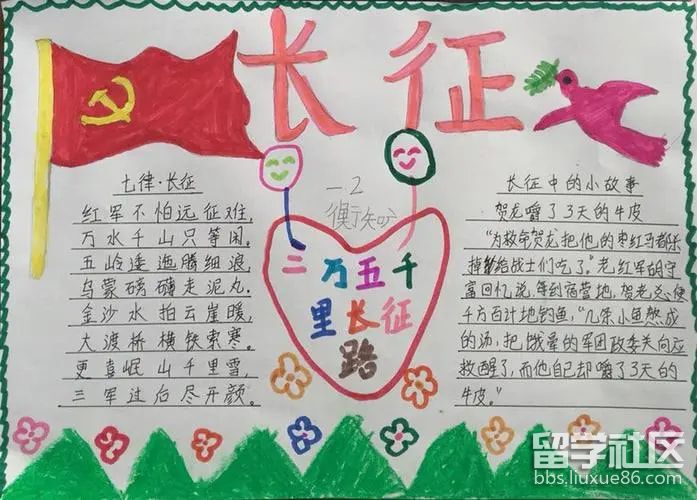 长征
七律·长征
红军不怕远征难,
万水千山只等闲。
五岭逶迤腾细浪,
乌蒙磅礴走泥丸.
金沙水拍云崖暖,
大渡桥横铁索寒。
更喜岷山千里雪,
三军过后尽开颜。
一.2
二万五千
里长征
路
长征中的小故事
贺龙嚼了3天的牛皮
"为救命贺龙把他的枣红马都杀
掉给战士们吃了"老红军胡守
富回忆说,每到宿营地,贺老总便
千方百计地钓鱼,"几条小鱼熬成
的汤,把饿晕的军团政委关向应
救醒了,而他自己却嚼了3天的
牛皮。"
留学社区
bbs.liuxue86.com